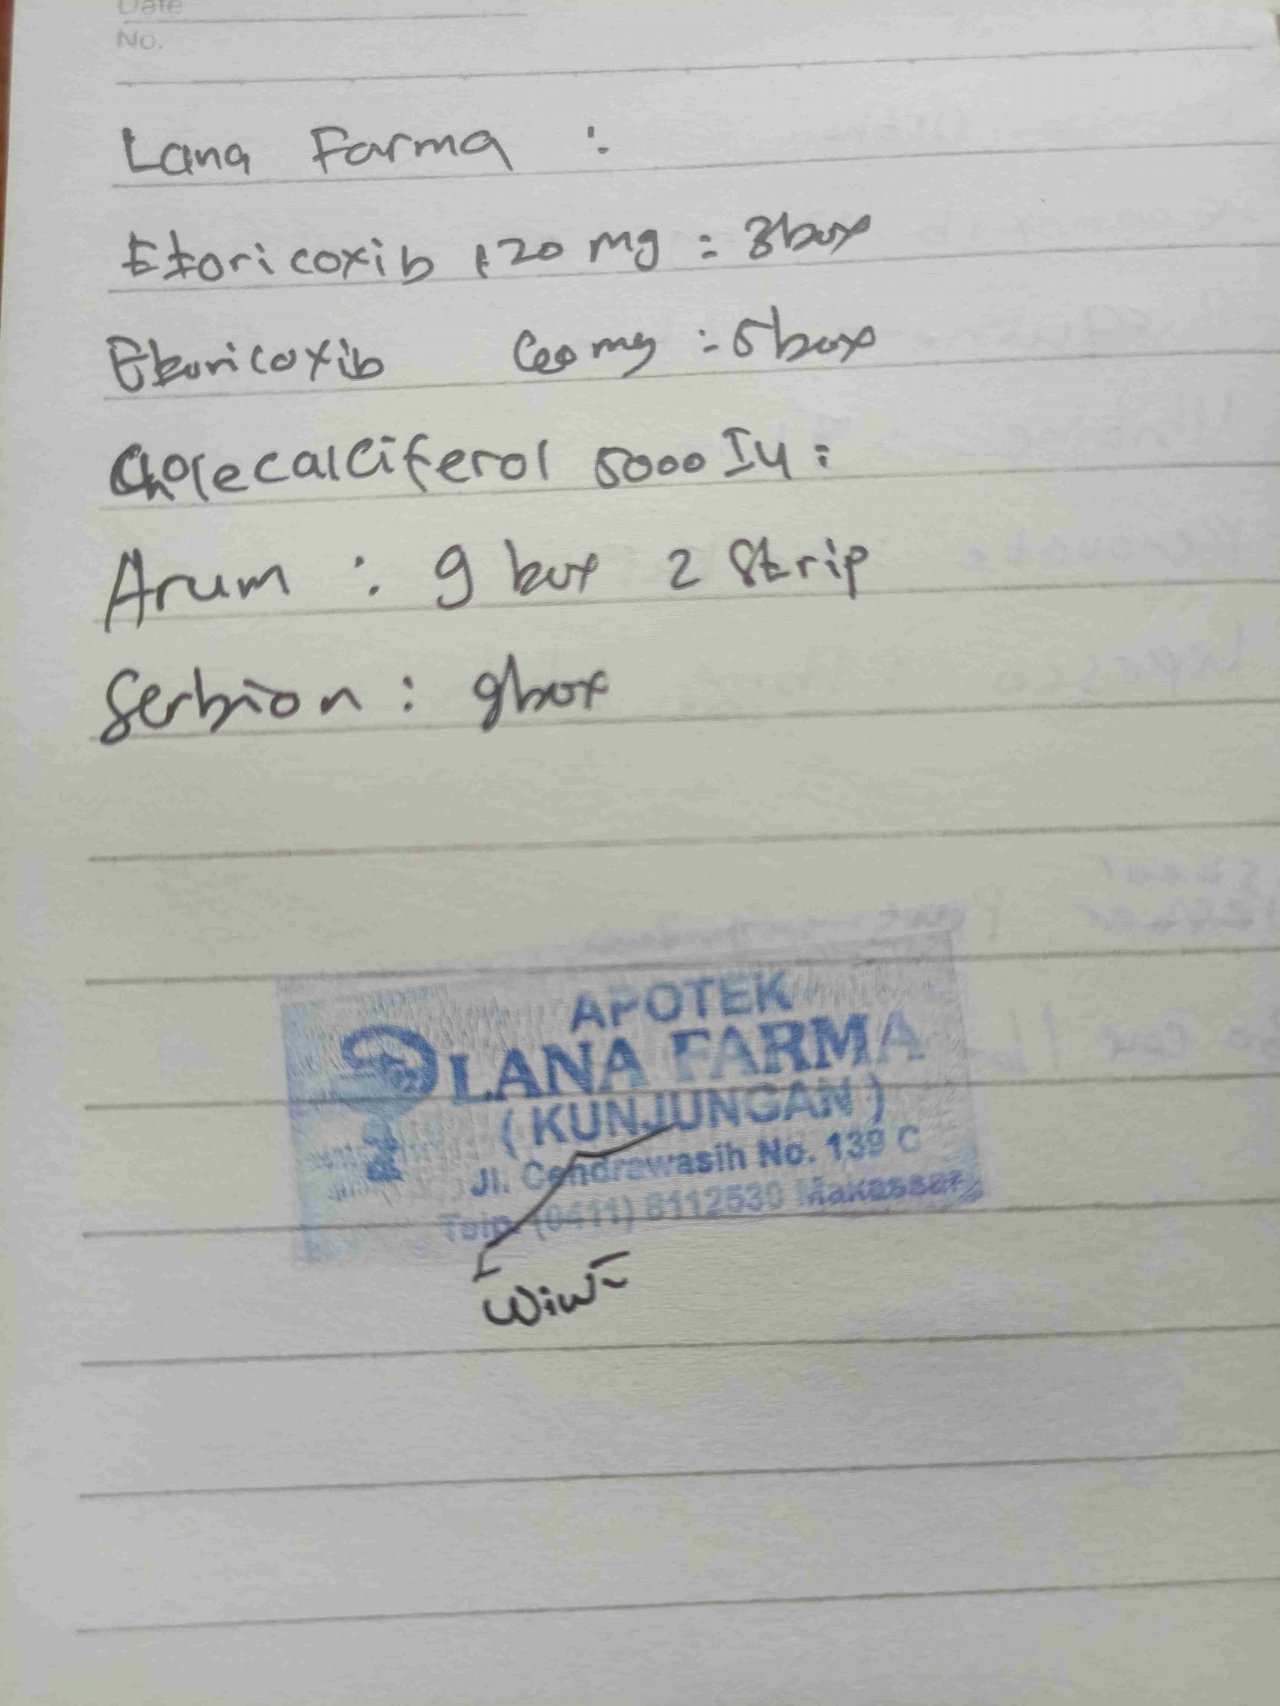 Date
No.
Lana Farma :
Etoricoxib 120 mg : 3 box
Etoricoxib 60 mg : 5 box
Cholecalciferol 5000 IU :
Arum : 9 box 2 Strip
Serbion : 9 box
APOTEK
LANA FARMA
( KUNJUNGAN )
Jl. Cendrawasih No. 139 C
Telp. (0411) 8112530 Makassar
Wiwi